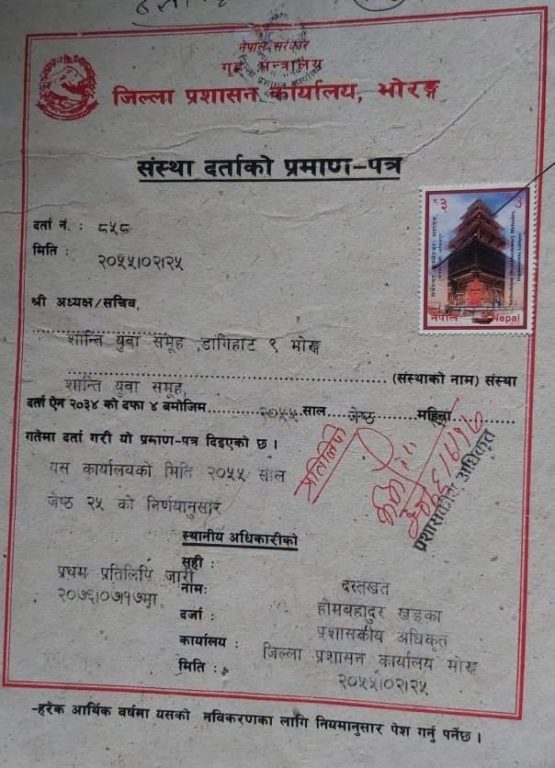 नेपाल सरकार
गृह मन्त्रालय
जिल्ला प्रशासन कार्यालय, मोरङ्ग
संस्था दर्ताको प्रमाण-पत्र
दर्ता नं. : ८५८
मिति : २०५५।०२।२५
३ 3
नेपाल Nepal
श्री अध्यक्ष/सचिव,
शान्ति युवा समूह, डांगीहाट ९ मोरङ्ग
(संस्थाको नाम) संस्था
शान्ति युवा समूह,
दर्ता ऐन २०३४ को दफा ४ बमोजिम २०५५ साल जेष्ठ महिना
गतेमा दर्ता गरी यो प्रमाण-पत्र दिइएको छ ।
यस कार्यालयको मिति २०५५ साल
जेष्ठ २५ को निर्णयानुसार
प्रतिलिपि
प्रशासकीय अधिकृत
स्थानीय अधिकारीको
सही :
प्रथम प्रतिलिपि जारी
२०७६।०७।१७मा
नामः दस्तखत
होमबहादुर खड्का
दर्जा : प्रशासकीय अधिकृत
कार्यालय : जिल्ला प्रशासन कार्यालय मोरङ्ग
मिति : २०५५।०२।२५
-हरेक आर्थिक वर्षमा यसको नविकरणका लागि नियमानुसार पेश गर्नु पर्नेछ ।